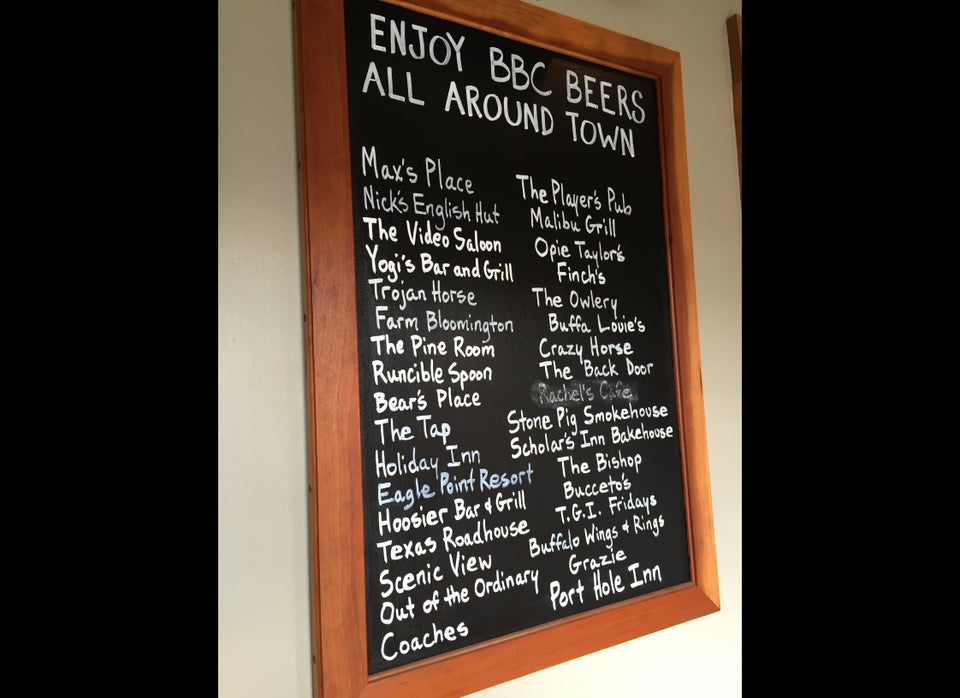 ENJOY BBC BEERS
ALL AROUND TOWN
Max's Place
Nick's English Hut
The Video Saloon
Yogi's Bar and Grill
Trojan Horse
Farm Bloomington
The Pine Room
Runcible Spoon
Bear's Place
The Tap
Holiday Inn
Eagle Point Resort
Hoosier Bar & Grill
Texas Roadhouse
Scenic View
Out of the Ordinary
Coaches
The Player's Pub
Malibu Grill
Opie Taylor's
Finch's
The Owlery
Buffa Louie's
Crazy Horse
The Back Door
Rachel's Cafe
Stone Pig Smokehouse
Scholar's Inn Bakehouse
The Bishop
Bucceto's
T.G.I. Fridays
Buffalo Wings & Rings
Grazie
Port Hole Inn